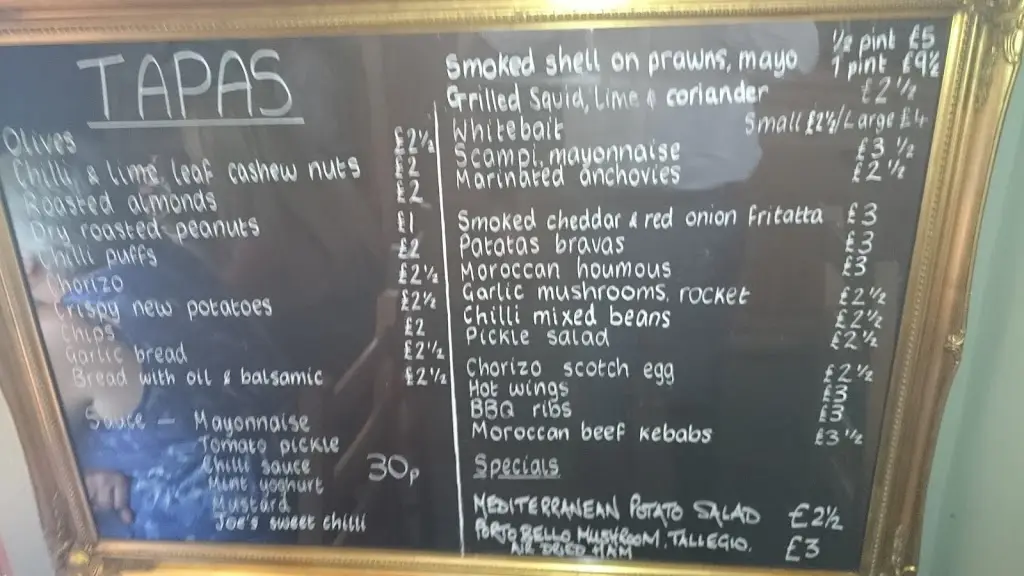 TAPAS
Olives £2½
Chilli & lime leaf cashew nuts £2
Roasted almonds £2
Dry roasted peanuts £1
Chilli puffs £2
Chorizo £2½
Crispy new potatoes £2½
Chips £2
Garlic bread £2½
Bread with oil & balsamic £2½
Sauce - Mayonnaise
Tomato pickle
Chilli sauce
Mint yoghurt
Mustard
Joe's sweet chilli
30p
½ pint £5
Smoked shell on prawns, mayo 1 pint £9½
Grilled Squid, Lime & coriander £2½
Whitebait Small £2½/Large £4
Scampi, mayonnaise £3½
Marinated anchovies £2½
Smoked cheddar & red onion fritatta £3
Patatas bravas £3
Moroccan houmous £3
Garlic mushrooms, rocket £2½
Chilli mixed beans £2½
Pickle salad £2½
Chorizo scotch egg £2½
Hot wings £3
BBQ ribs £3
Moroccan beef kebabs £3½
Specials
MEDITERRANEAN POTATO SALAD £2½
PORTOBELLO MUSHROOM, TALLEGIO, £3
AIR DRIED HAM